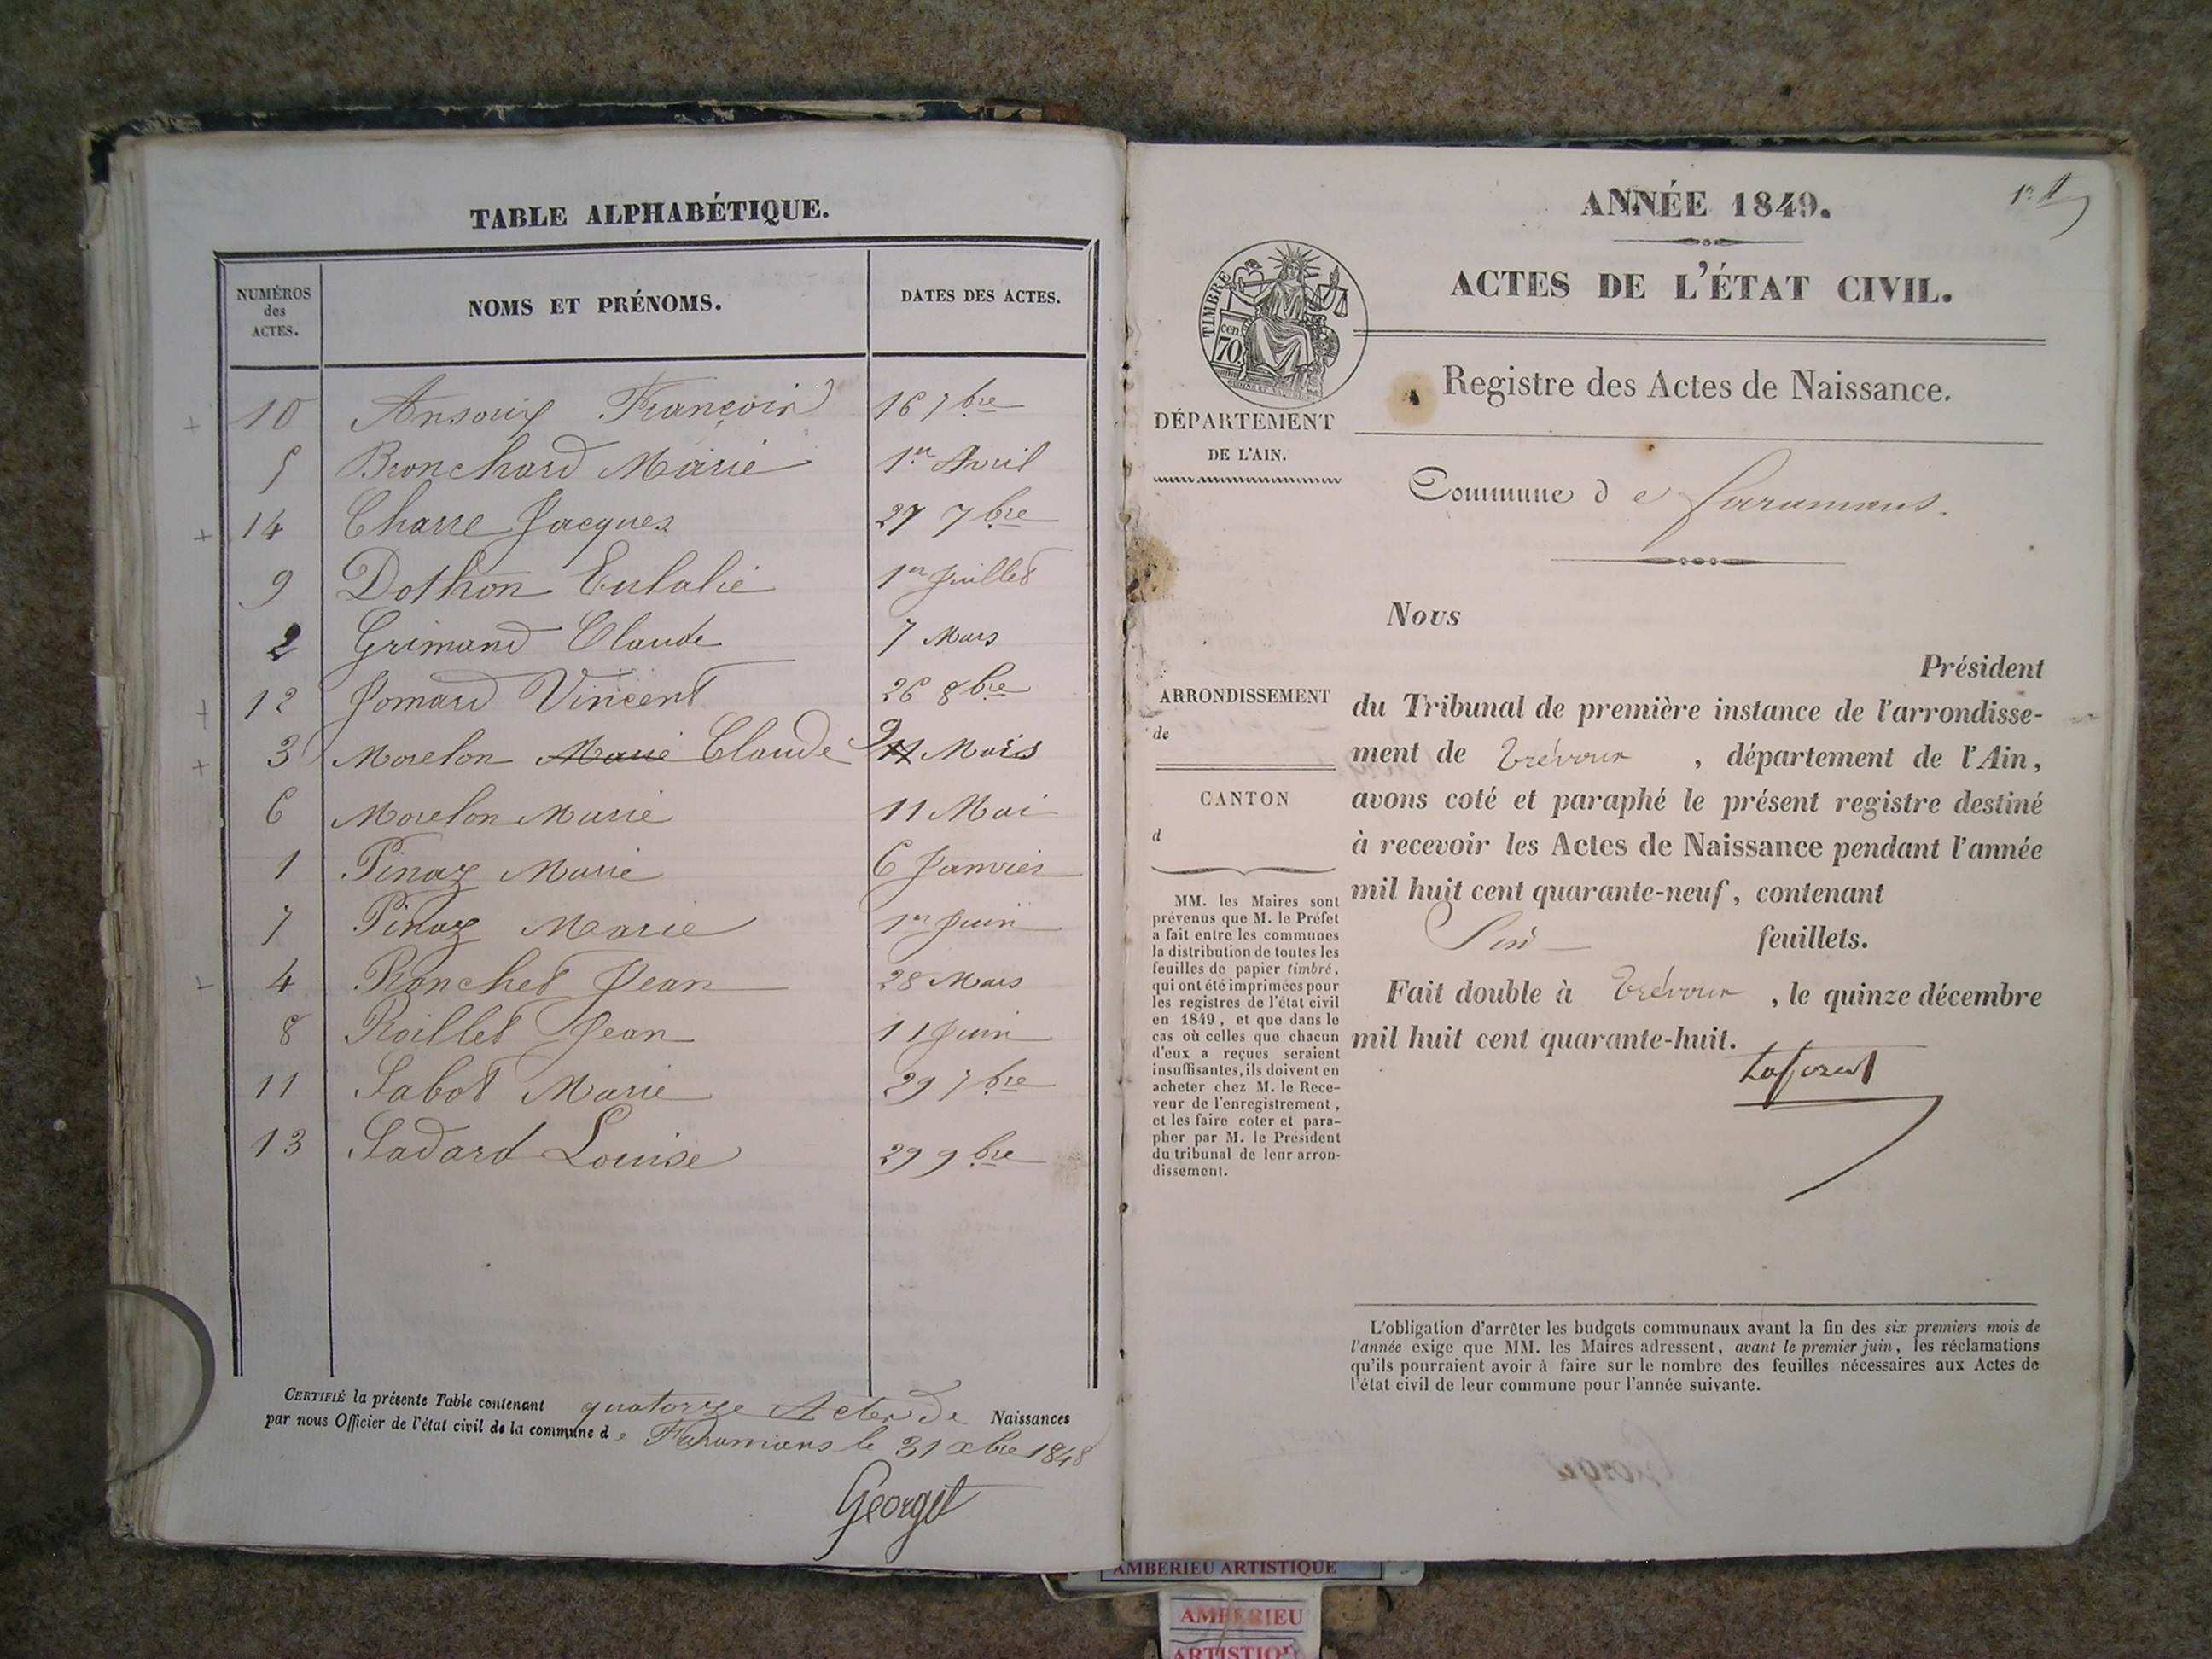 TABLE ALPHABÉTIQUE.
NUMÉROS des ACTES. NOMS ET PRÉNOMS. DATES DES ACTES.
10 François 16 7bre
5 Bronchard Marie 1er Avril
14 Charre Jacques 27 7bre
9 Dothon Eulalie 1er Juillet
2 Grimand Claude 7 Mars
12 Jomard Vincent 26 8bre
3 Morelon Marie Claude 9 Mars
6 Morelon Marie 11 Mai
1 Pinaz Marie 6 Janvier
7 Pinaz Marie 1er Juin
4 Ronchet Jean 28 Mars
8 Roillet Jean 11 Juin
11 Sabot Marie 29 7bre
13 Sadard Louise 29 9bre
CERTIFIÉ la présente Table contenant quatorze Actes de Naissances
par nous Officier de l'état civil de la commune de Faramans le 31 xbre 1848
Georget
1er
ANNÉE 1849.
ACTES DE L'ÉTAT CIVIL.
TIMBRE
70 cen
Registre des Actes de Naissance.
DÉPARTEMENT
DE L'AIN.
Commune de Faramans.
Nous
Président
du Tribunal de première instance de l'arrondisse-
ment de Trévoux, département de l'Ain,
avons coté et paraphé le présent registre destiné
à recevoir les Actes de Naissance pendant l'année
mil huit cent quarante-neuf, contenant
Six feuillets.
Fait double à Trévoux, le quinze décembre
mil huit cent quarante-huit.
ARRONDISSEMENT
de
CANTON
d
MM. les Maires sont
prévenus que M. le Préfet
a fait entre les communes
la distribution de toutes les
feuilles de papier timbré,
qui ont été imprimées pour
les registres de l'état civil
en 1849, et que dans le
cas où celles que chacun
d'eux a reçues seraient
insuffisantes, ils doivent en
acheter chez M. le Rece-
veur de l'enregistrement,
et les faire coter et para-
pher par M. le Président
du tribunal de leur arron-
dissement.
L'obligation d'arrêter les budgets communaux avant la fin des six premiers mois de
l'année exige que MM. les Maires adressent, avant le premier juin, les réclamations
qu'ils pourraient avoir à faire sur le nombre des feuilles nécessaires aux Actes de
l'état civil de leur commune pour l'année suivante.
AMBERIEU ARTISTIQUE
AMBERIEU
ARTISTIQUE